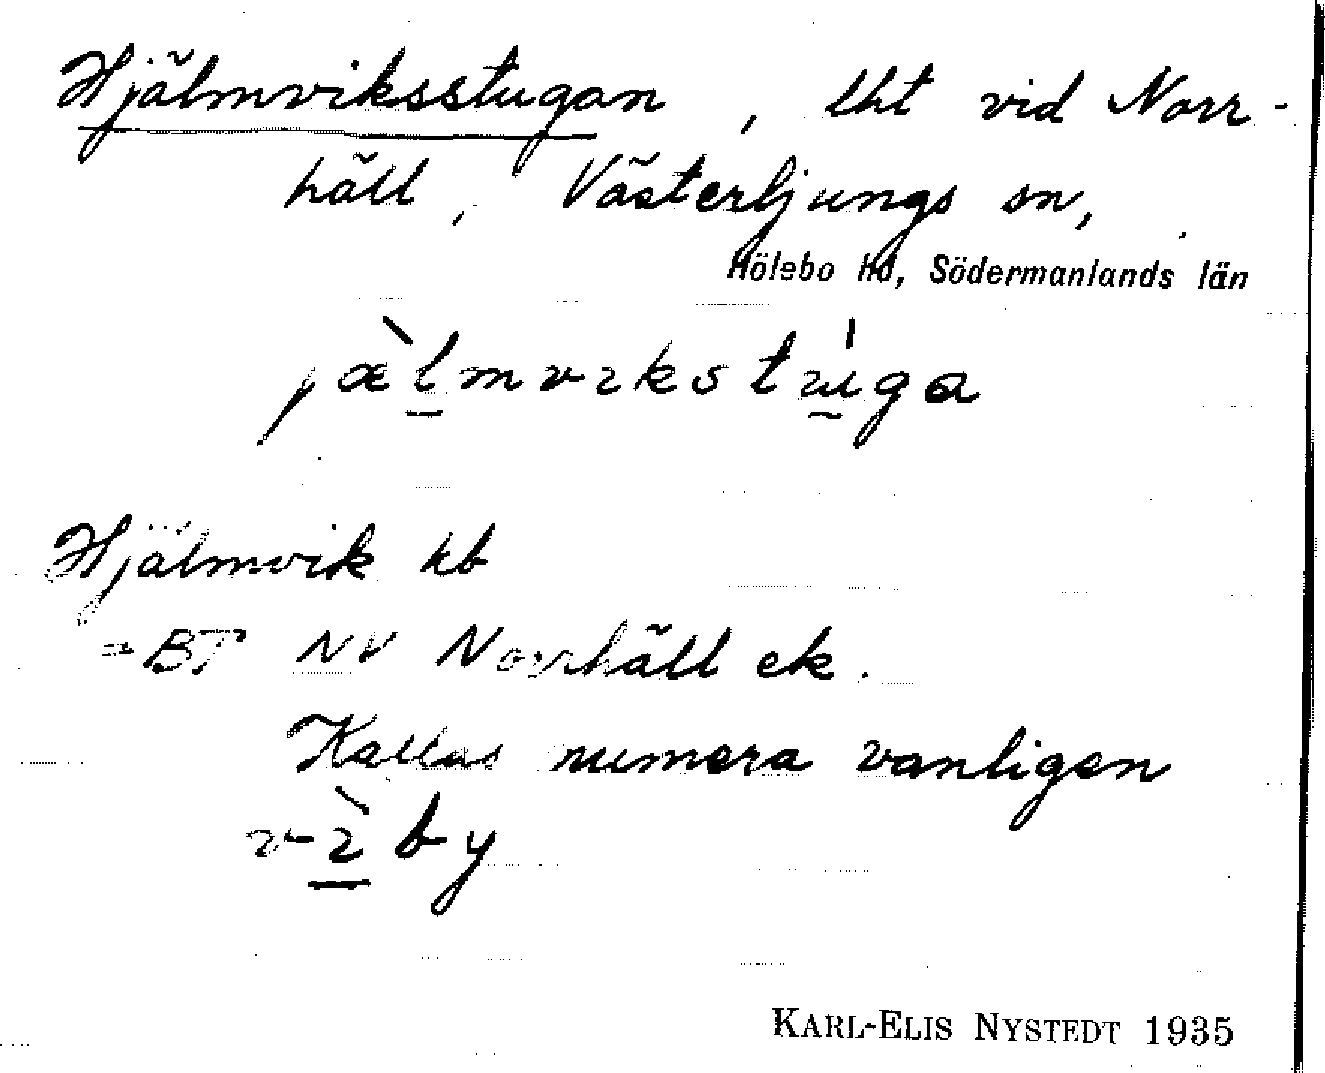 Hjälmviksstugan, lht vid Norr-
häll, Västerljungs sn,
Hölebo hd, Södermanlands län
jæ̀l̠mvıkstu̠ıga
Hjälmvik kb
= BT NV Norrhäll ek.
Kallas numera vanligen
vı̠̀by
KARL-ELIS NYSTEDT 1935